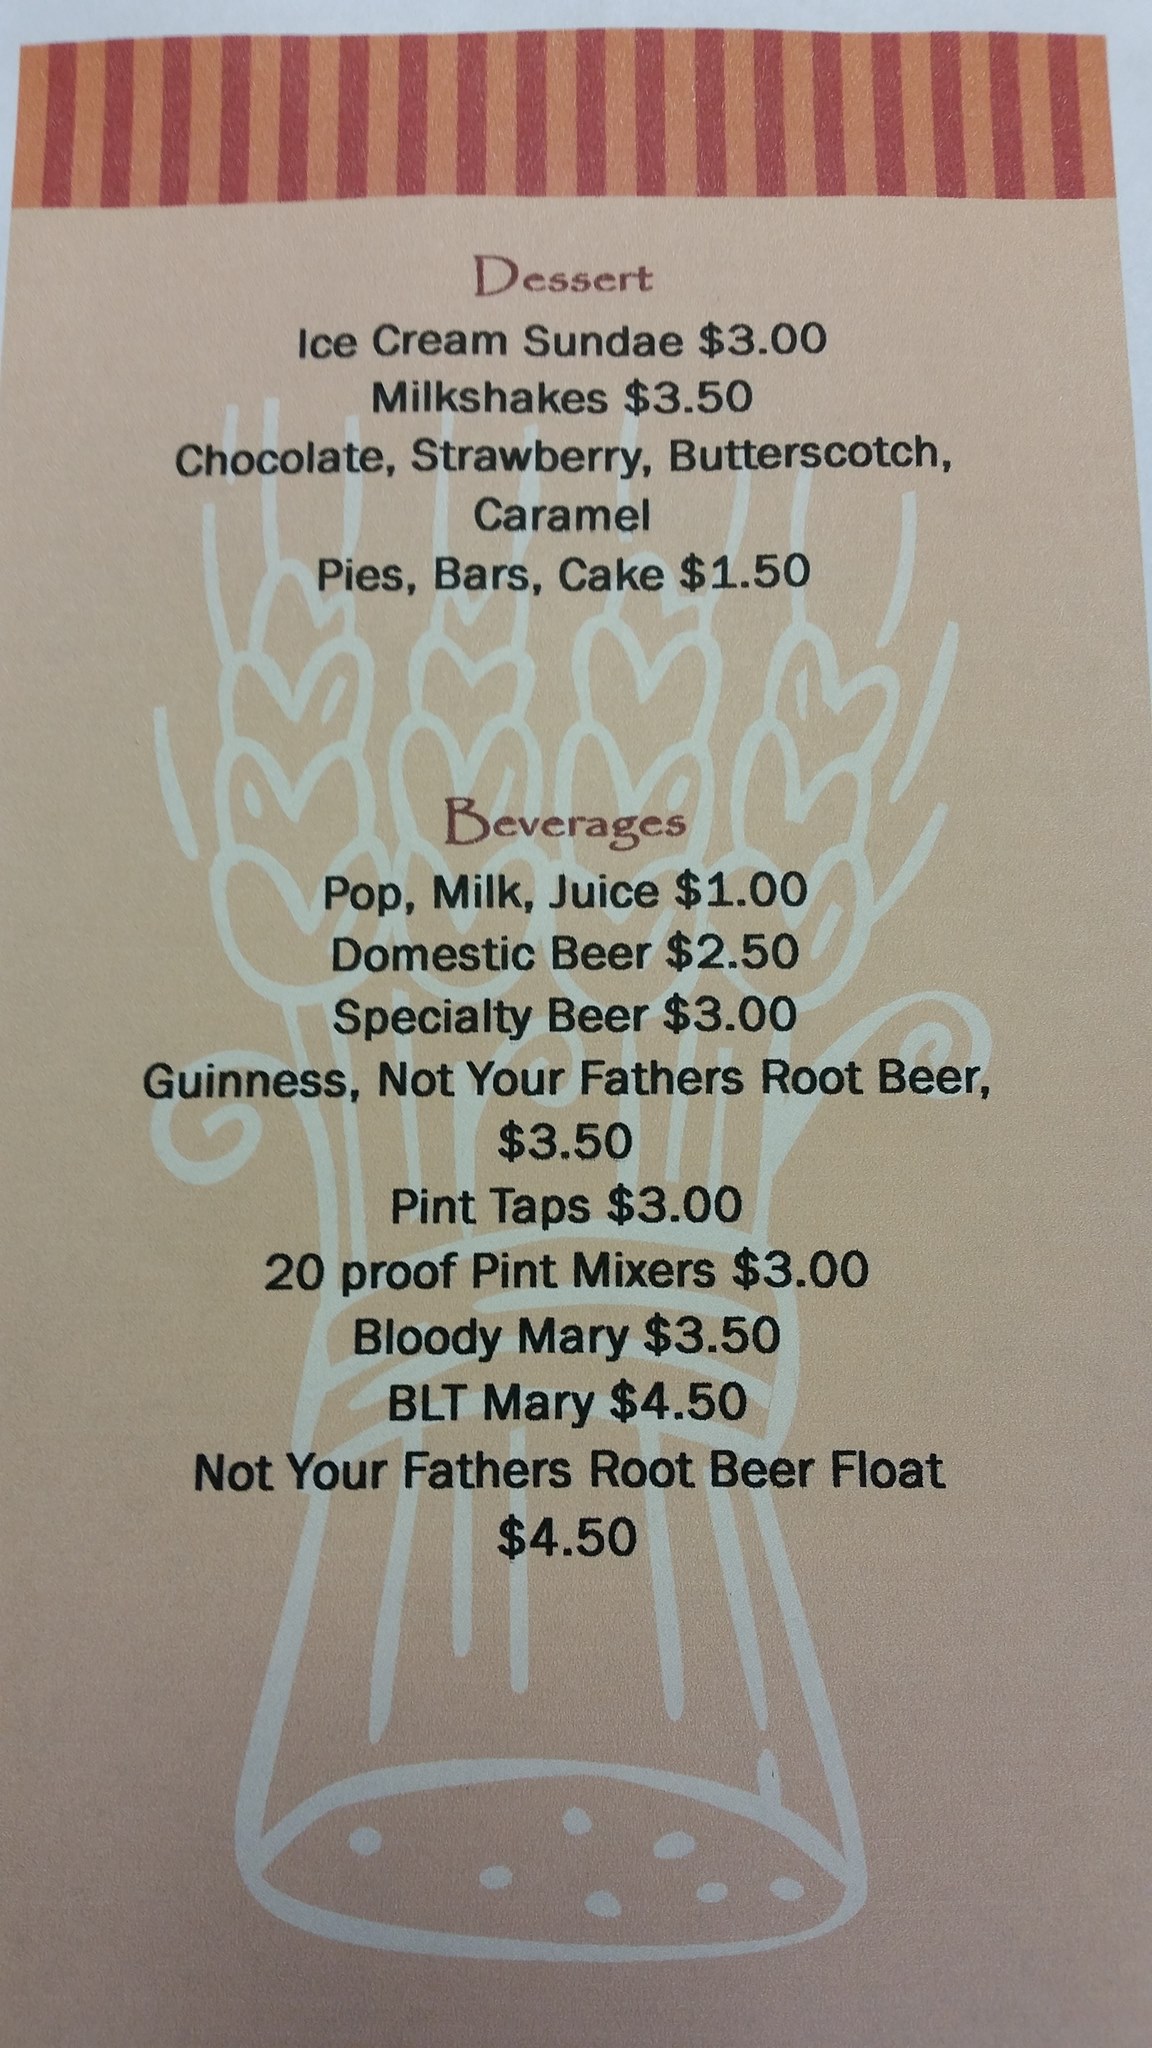 Dessert
Ice Cream Sundae $3.00
Milkshakes $3.50
Chocolate, Strawberry, Butterscotch,
Caramel
Pies, Bars, Cake $1.50
Beverages
Pop, Milk, Juice $1.00
Domestic Beer $2.50
Specialty Beer $3.00
Guinness, Not Your Fathers Root Beer,
$3.50
Pint Taps $3.00
20 proof Pint Mixers $3.00
Bloody Mary $3.50
BLT Mary $4.50
Not Your Fathers Root Beer Float
$4.50